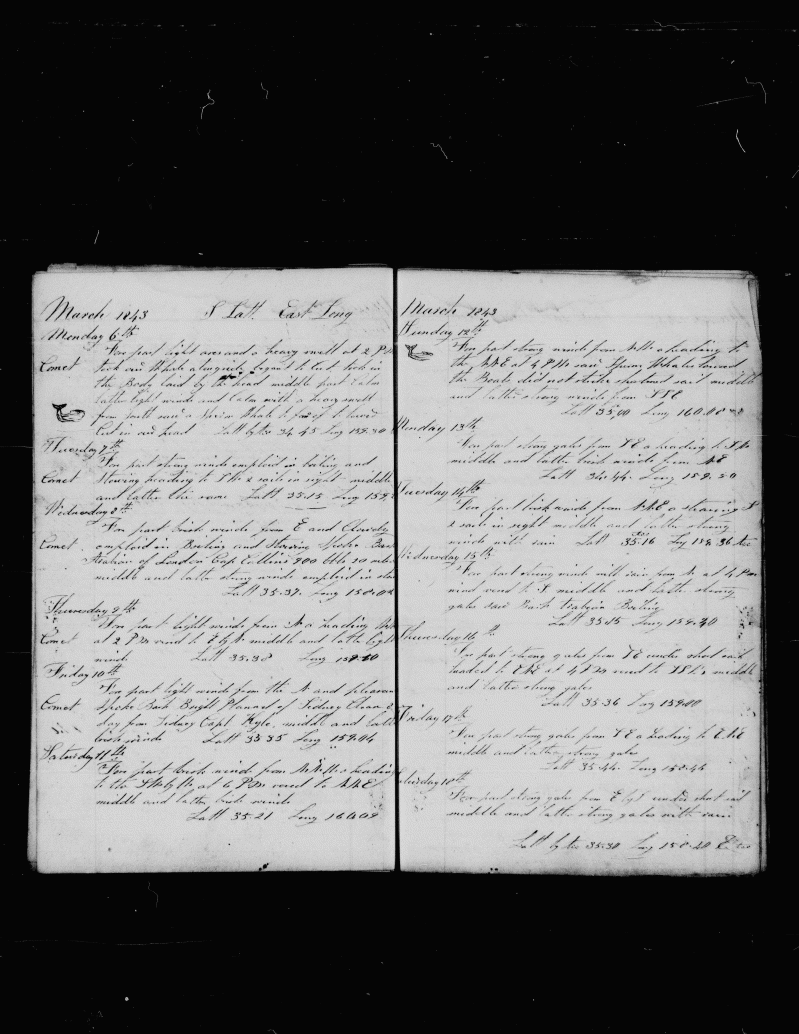 March 1843 S Latt. East Long
Monday 6th
Fore part light aires and a heavy swell at 2 P M
Comet took our Whale alongside began to Cut took in
the Body laid by the head middle part Calm
latter light winds and Calm with a heavy swell
from saw a Sperm Whale
Cut in our head Latt by ob 34.45 Long 159.30
Tuesday 7th
Fore part strong winds emploid in boiling and
Comet Stowing heading to 2 sails in sight middle
and latter the same Latt 35.15 Long 159
Wednesday 8th
Fore part brisk winds from E and Cloudy
Comet emploid in Boiling and Stowing Spoke Bark
of London Capt Collins 900 bbls 30
middle and latter strong winds emploid in
Latt 35.37. Long 158.02
Thursday 9th
Fore part light winds from N a heading
Comet at 2 P M veerd to E by N middle and latter light
winds Latt 35.38 Long 159.20
Friday 10th
Fore part light winds from the N and pleasant
Comet Spoke Bark of Sidney Clean
day from Sidney Capt middle and latter
brisk winds Latt 35.35 Long 159.04
Saturday 11th
Fore part brisk winds from heading
to the at 6 P M veerd to NNE
middle and latter brisk winds
Latt 35.21 Long 160.09
March 1843
Sunday 12th
Fore part strong winds from a heading to
the NNE at 4 P M saw Sperm Whales lowerd
the Boats did not strike shortned sail middle
and latter strong winds from
Latt 35.00 Long 160.08
Monday 13th
Fore part strong gales from a heading to
middle and latter brisk winds from NE
Latt 34.44. Long 159.50
Tuesday 14th
Fore part brisk winds from NNE a stearing S
2 sails in sight middle and latter strong
winds with rain Latt 35.16 Long 158.36
Wednesday 15th
Fore part strong winds with rain from N. at 4 P M
wind veerd to S middle and latter strong
gales saw Bark Boiling
Latt 35.15 Long 159.40
Thursday 16th
Fore part strong gales from SE under short sail
headed to ENE at 4 P M veerd to middle
and latter strong gales
Latt 35.36 Long 159.00
Friday 17th
Fore part strong gales from SE a heading to ENE
middle and latter strong gales
Latt 35.44. Long 158.46
Saturday 18th
Fore part strong gales from E by S under short sail
middle and latter strong gales with rain
Latt by ob 35.30 Long 158.40 E